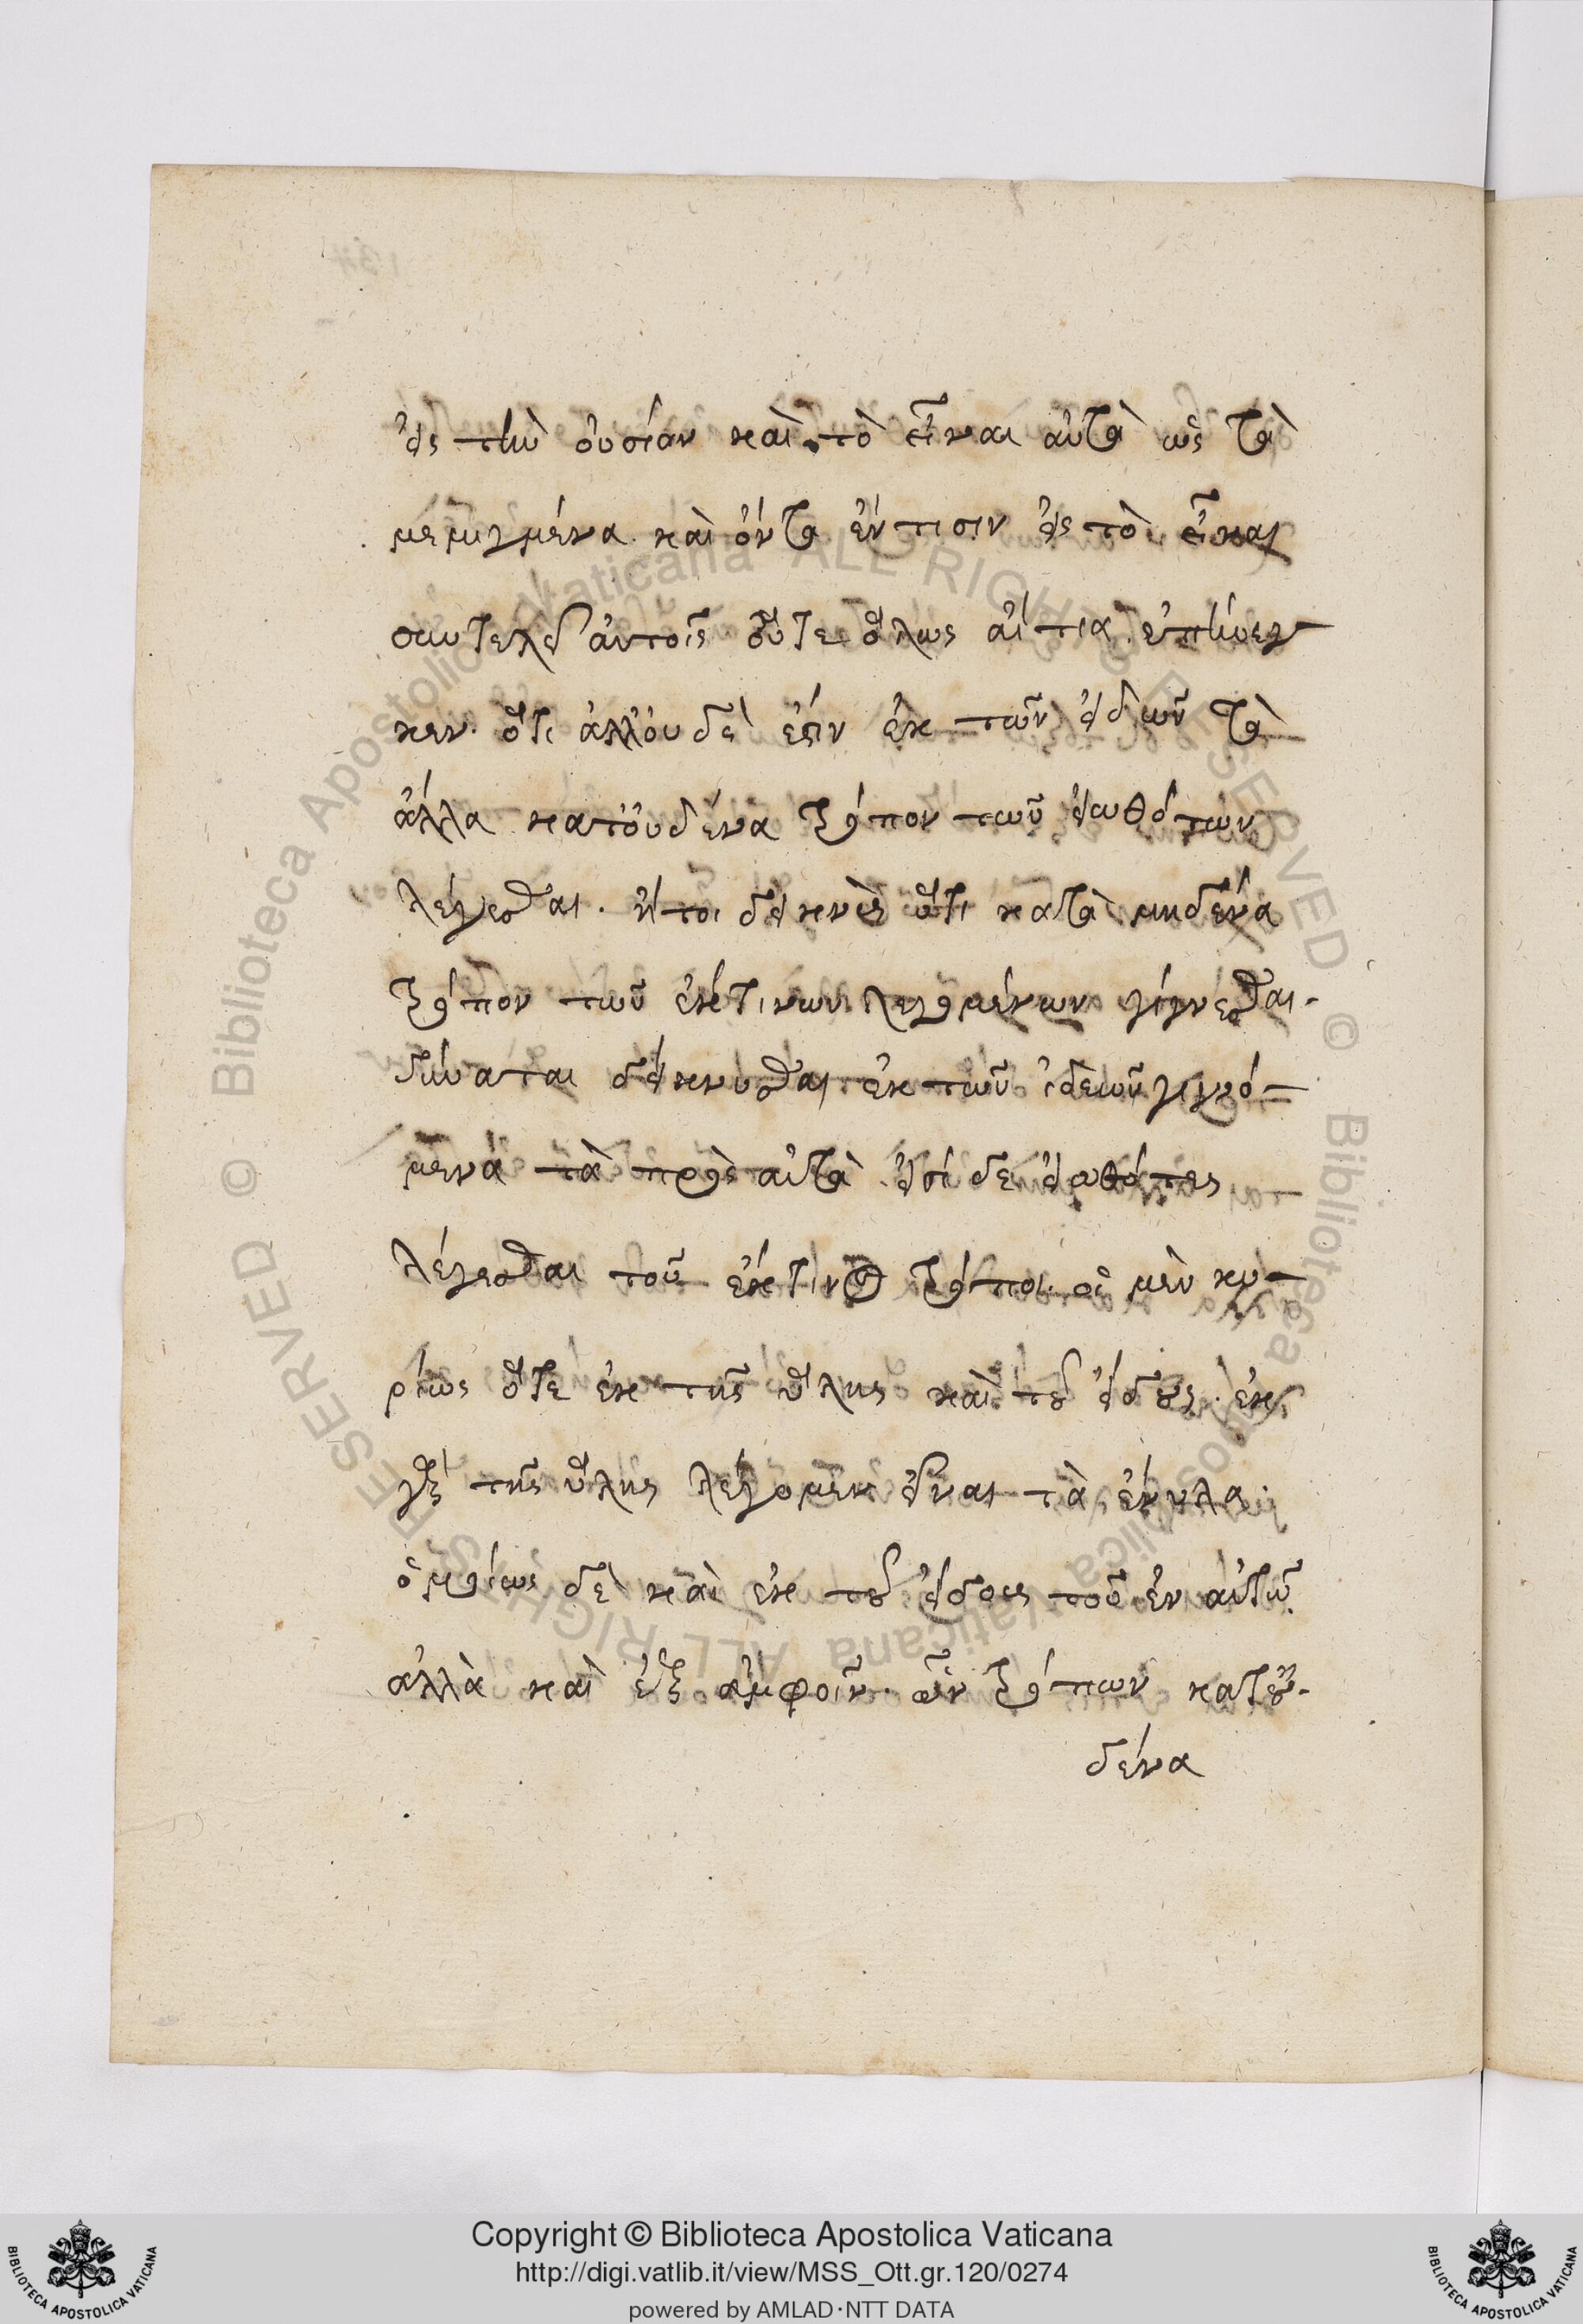 εἰς τὴν οὐσίαν καὶ τὸ εἶναι αὐτὰ ὡς τὰ
μεμιγμένα καὶ ὄντα ἔν τισιν εἰς τὸ εἶναι
συντελεῖ αὐτοῖς οὔτε ὅλως αἴτια. ἐπήνεγ
κεν. ὅτι ἀλλ' οὐδέ ἐστιν ἐκ τῶν εἰδῶν τὰ
ἄλλα κατ' οὐδένα τρόπον τῶν εἰωθότων
λέγεσθαι. ἤτοι δεικνὺς ὅτι κατὰ μηδένα
τρόπον τῶν ἔκ τινων λεγομένων γίγνεσθαι.
δύναται δείκνυσθαι ἐκ τῶν ἰδεῶν γιγνό-
μενα τὰ πρὸς αὐτὰ. εἰσὶ δὲ εἰωθότες
λέγεσθαι τοῦ ἔκ τινος τρόποι. οἱ μὲν κυ-
ρίως ὅ τε ἐκ τῆς ὕλης καὶ τοῦ εἴδους. ἐκ
γὰρ τῆς ὕλης λέγομεν εἶναι τὰ ἔνυλα.
ὁμοίως δὲ καὶ ἐκ τοῦ εἴδους τοῦ ἐν αὐτῷ
ἀλλὰ καὶ ἐξ ἀμφοῖν. ὧν τρόπων κατ' οὐ-
δένα
Copyright © Biblioteca Apostolica Vaticana
http://digi.vatlib.it/view/MSS_Ott.gr.120/0274
powered by AMLAD·NTT DATA
BIBLIOTECA APOSTOLICA VATICANA
BIBLIOTECA APOSTOLICA VATICANA